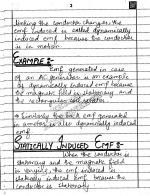 linking the conductor changes, the
emf induced is called dynamically
induced emf because the conductor
is in motion
EXAMPLE :-
Emf generated in case
of an AC generator is an example
of dynamically induced emf because
the magnetic field is stationary and
the rectangular coil rotates.
* Similarly the back emf generated
in a motor is also dynamically induced
emf.
STATICALLY INDUCED EMF :-
When the conductor is
stationary and the magnetic field
is varying, the emf induced is
statically induced emf because the
conductor is stationary